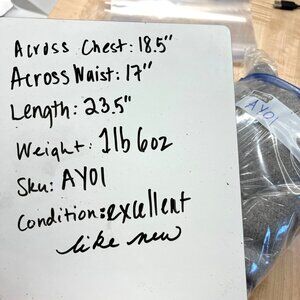 Across Chest: 18.5"
Across Waist: 17"
Length: 23.5"
Weight: 1lb 6oz
Sku: AY01
Condition: excellent
like new
AY01